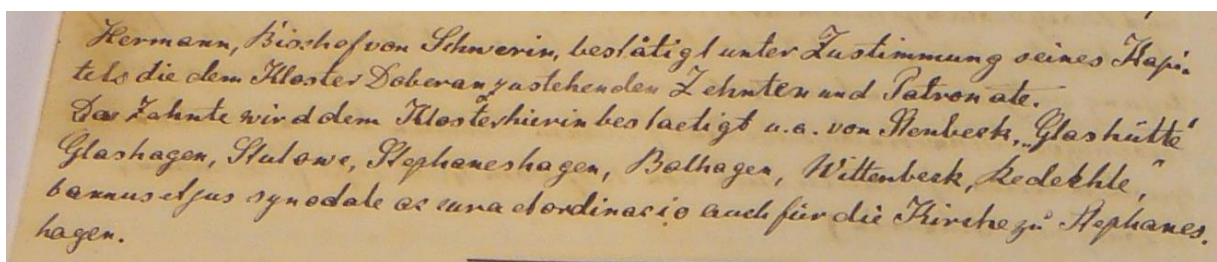 Hermann, Bischof von Schwerin, bestätigt unter Zustimmung seines Kapi-
tels die dem Kloster Doberan zustehenden Zehnten und Patronate.
Das Zehnte wird dem Kloster hierin bestaetigt u.a. von Stenbeck, „Glashütte"
Glashagen, Stulowe, Stephaneshagen, Bolhagen, Wittenbeck, Redeckhte,"
bannus et jus synodale ac cura et ordinacio auch für die Kirche zu Stephanes-
hagen.